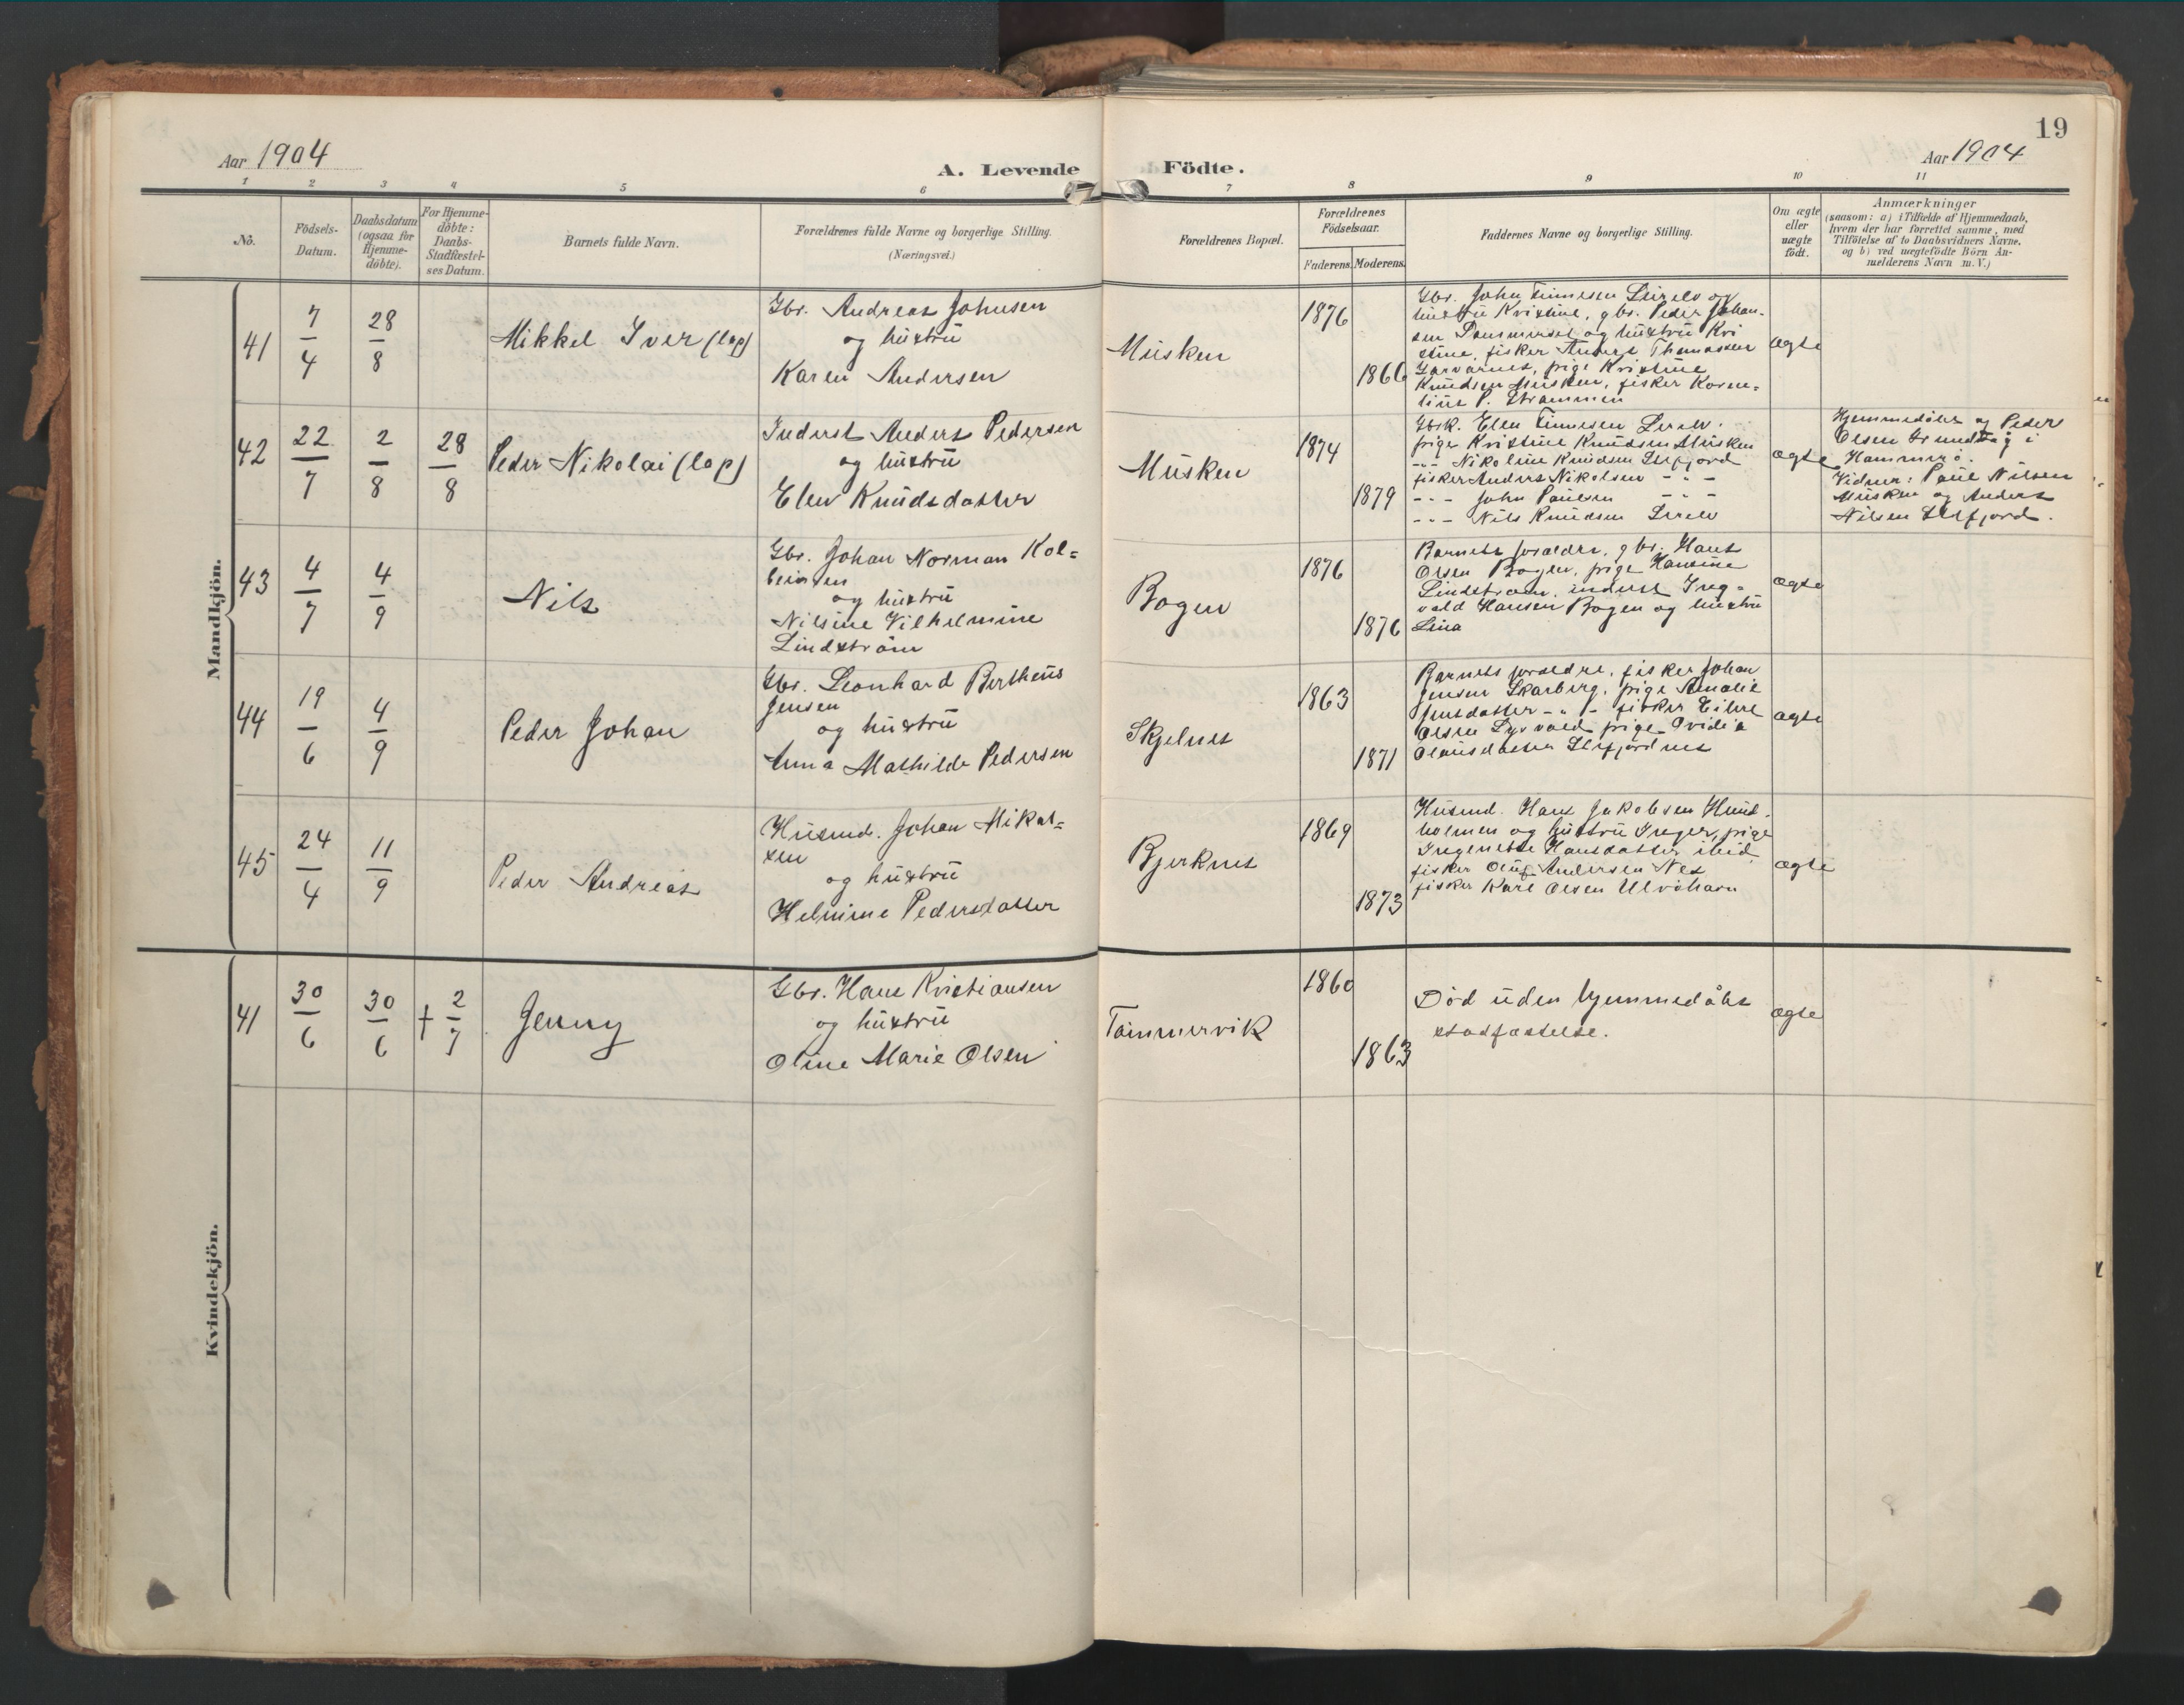 19
Aar 1904
A. Levende Födte.
Aar 1904
1 2 3 4 5 6 7 8 9 10 11
No.
Födsels-
Datum.
Daabsdatum
(ogsaa for
Hjemme-
döbte).
For Hjemme-
döbte:
Daabs-
Stadfæstel-
ses Datum.
Barnets fulde Navn.
Forældrenes fulde Navne og borgerlige Stilling.
(Næringsvei.)
Forældrenes Bopæl.
Forældrenes
Födselsaar.
Faderens. Moderens.
Faddernes Navne og borgerlige Stilling.
Om ægte
eller
uægte
födt.
Anmærkninger
(saasom: a) i Tilfælde af Hjemmedaab,
hvem der har forrettet samme, med
Tilföielse af to Daabsvidners Navne,
og b) ved uægtefödte Börn An-
melderens Navn m. V.)
Mandkjön.
41
7/4
28/8
Mikkel Iver (lap)
Gbr. Andreas Johnsen
og hustru
Karen Andersen
Musken
1876
1866
Gbr. John Finnesen Leirelv og
hustru Kristine, gbr. Peder Johan-
sen og hustru Kri
stine, fisker Anders Thomassen
pige Kristine
Knudsen Musken, fisker Korne-
lius P. Strømmen
ægte
42
22/7
2/8
28/8
Peder Nikolai (lap)
Inderst Anders Pedersen
og hustru
Elen Knudsdatter
Musken
1874
1879
Gbrk. Elen Finnesen Lerelv.
pige Kristine Knudsen Musken
-"- Nikoline Knudsen Helfjord
fisker Anders Nikolsen - " -
-"- John Paulsen - " -
-"- Nils Knudsen Lerelv
ægte
Hjemmedøbt af Peder
Olsen i
Hammerø.
Vidner: Paul Nilsen
Musken og Anders
Nilsen Helfjord.
43
4/7
4/9
Nils
Gbr. Johan Norman Kol=
beinsen
og hustru
Nilsine Vilhelmine
Lindstrøm
Bogen
1876
1876
Barnets forældre, gbr. Hans
Olsen Bogen, pige Hansine
Lindstrøm, inderst Ing=
vald Hansen Bogen og hustru
Lina
ægte
44
19/6
4/9
Peder Johan
Gbr. Leonhard Bertheus
Jensen
og hustru
Anna Mathilde Pedersen
Skjelnes
1863
1871
Barnets forældre, fisker Johan
Jensen Skarberg, pige Amalie
Jensdatter - " - fisker
Olsen pige Ovidia
Olausdatter
ægte
45
24/4
11/9
Peder Andreas
Husmd. Johan Mikal=
sen
og hustru
Helmine Pedersdatter
Bjerknes
1869
1873
Husmd. Hans Jakobsen Hund-
holmen og hustru Inger, pige
Ingenette Hansdatter ibid,
fisker Oluf Andersen Nes
fisker Karl Olsen Ulvøhavn
ægte
Kvindekjön.
41
30/6
30/6
† 2/7
Jenny
Gbr. Hans Kristiansen
og hustru
Oline Marie Olsen
Tømmervik
1860
1863
Død uden hjemmedåbs
stadfæstelse.
ægte